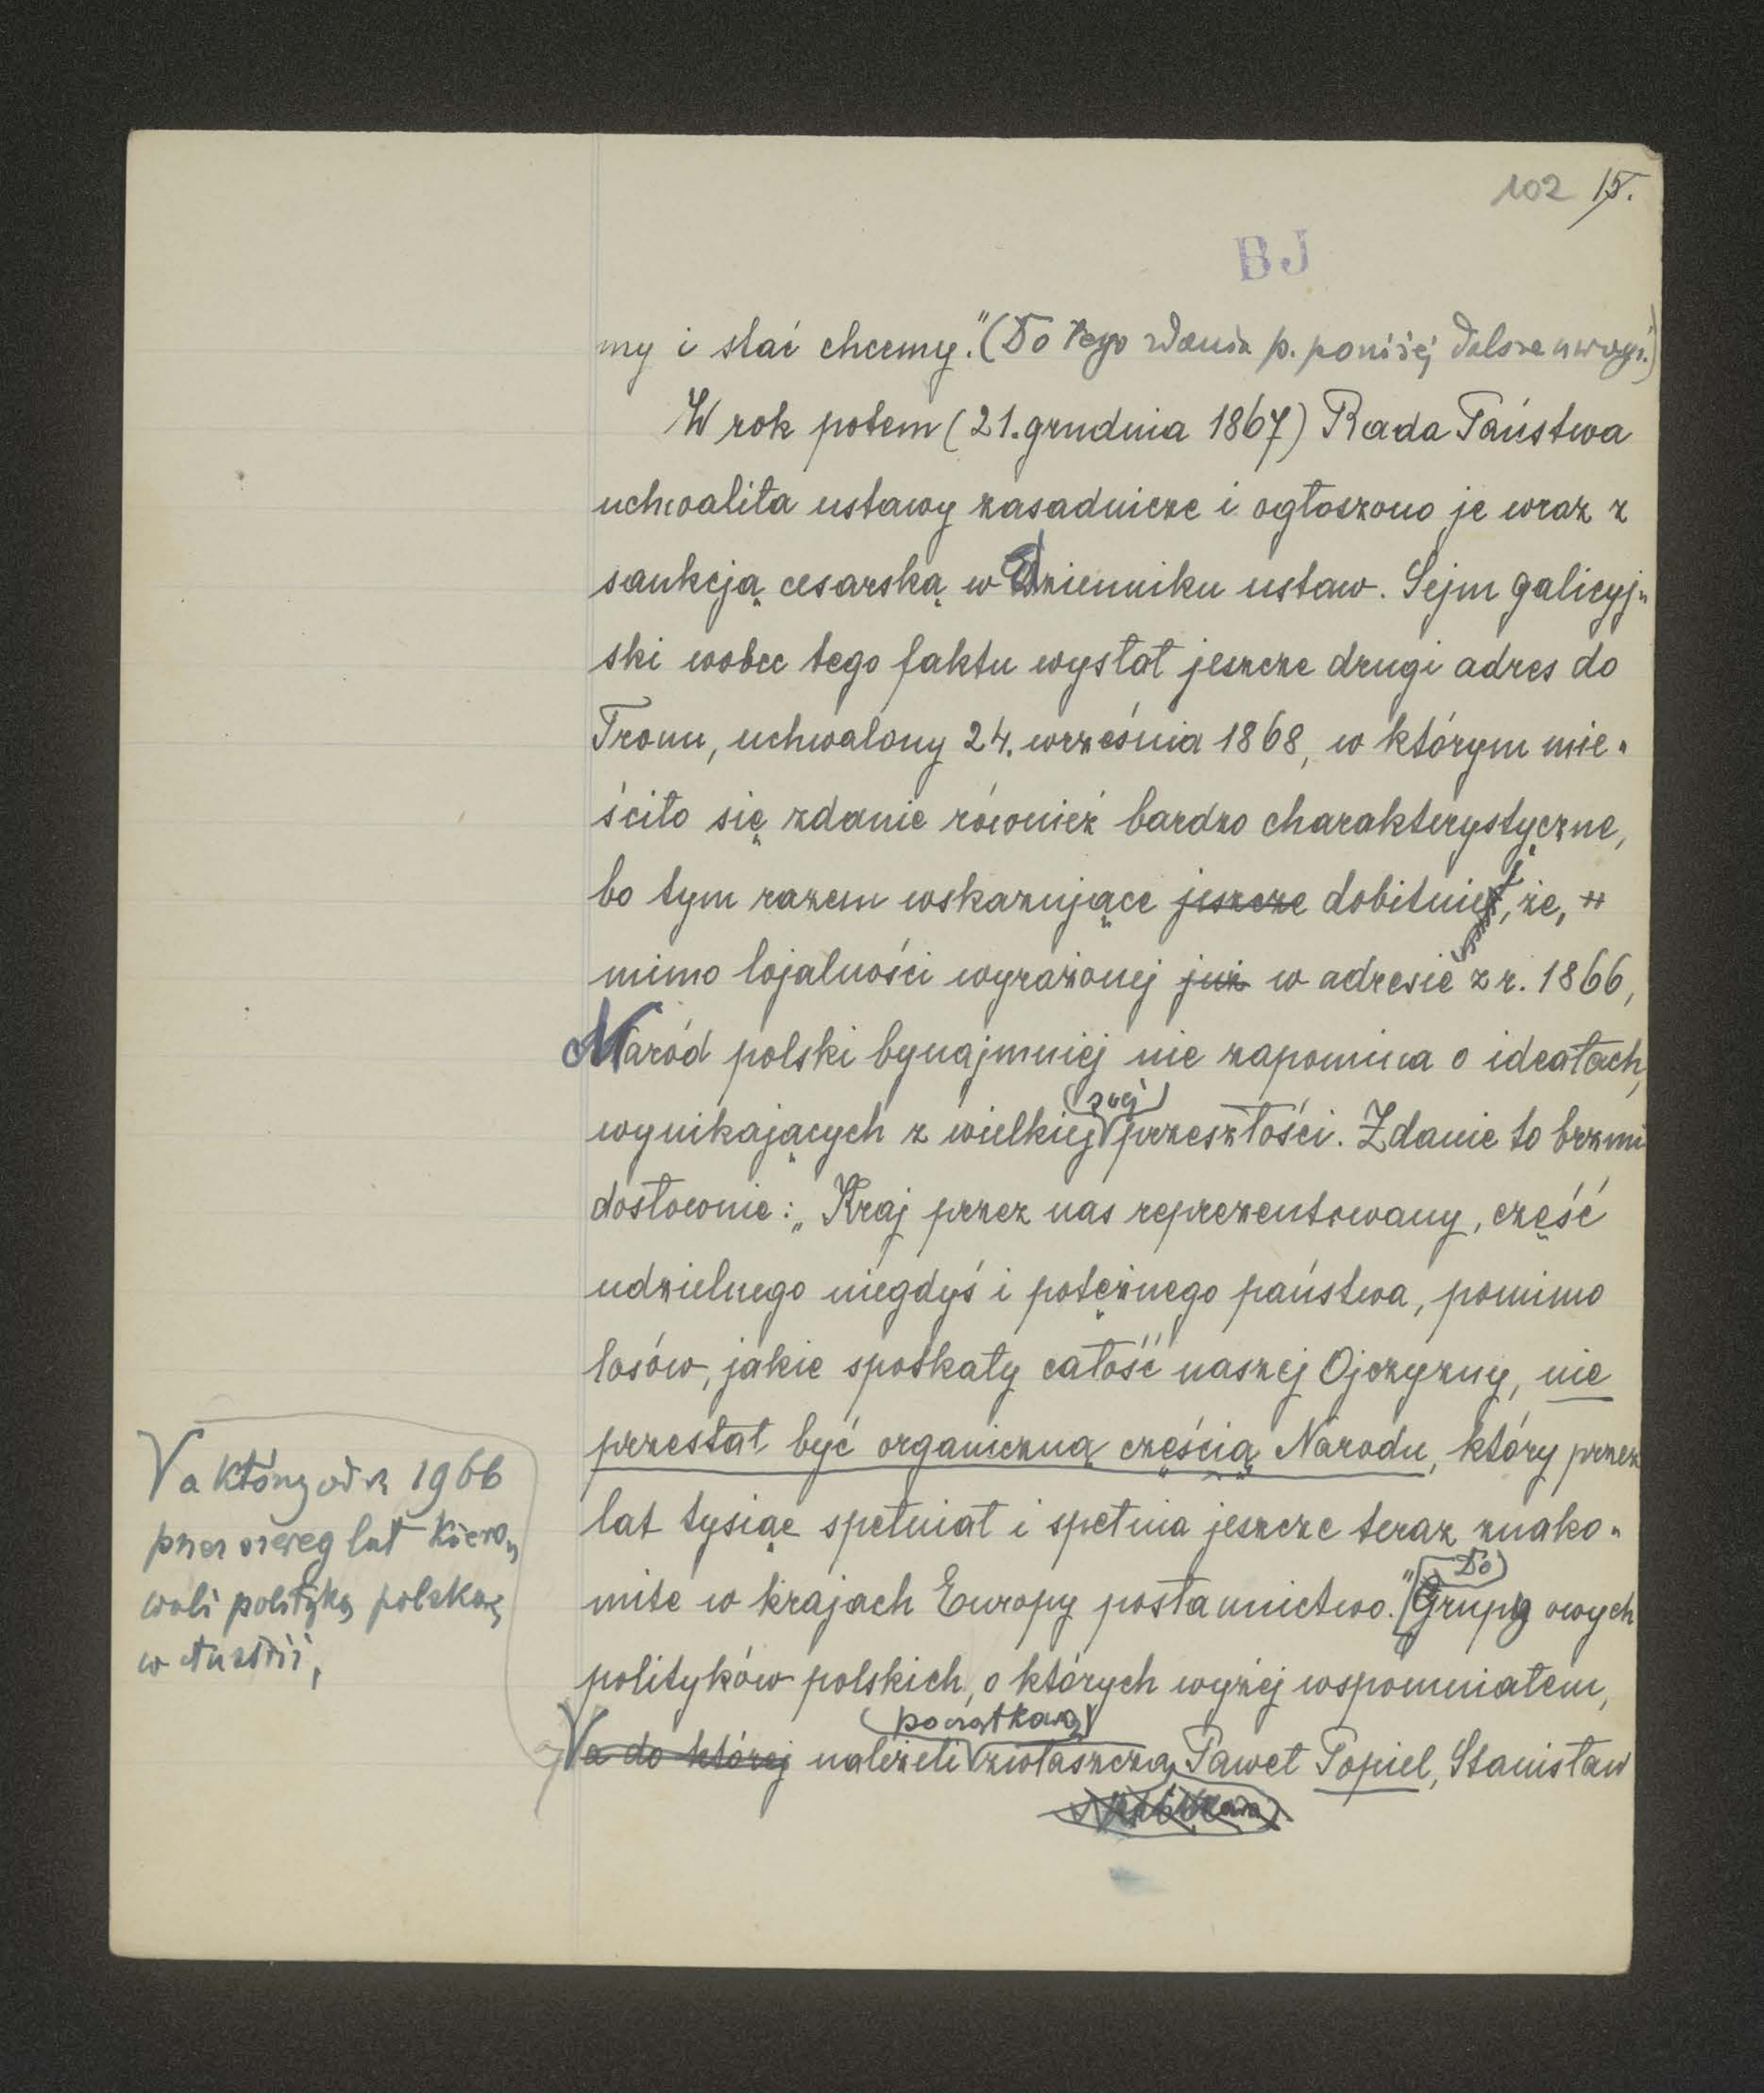 102 15.
BJ
my i stać chcemy." (Do tego zdania p. poniżej dalsze uwagi.)
W rok potem (21. grudnia 1867) Rada Państwa
uchwaliła ustawy zasadnicze i ogłoszono je wraz z
sankcją cesarską w dzienniku ustaw. Sejm galicyj-
ski wobec tego faktu wysłał jeszcze drugi adres do
Tronu, uchwalony 24. września 1868, w którym mie-
ściło się zdanie również bardzo charakterystyczne,
bo tym razem wskazujące jeszcze dobitniej, że,
mimo lojalności wyrażonej już w adresie z r. 1866,
Naród polski bynajmniej nie zapomina o ideałach,
wynikających z wielkiej swej przeszłości. Zdanie to brzmi
dosłownie: „Kraj przez nas reprezentowany, część
udzielnego niegdyś i potężnego państwa, pomimo
losów, jakie spotkały całość naszej Ojczyzny, nie
przestał być organiczną częścią Narodu, który przez
lat tysiąc spełniał i spełnia jeszcze teraz znako-
mite w krajach Europy posłannictwo." Do
Grupy owych
polityków polskich, o których wyżej wspomniałem,
a do której należeli początkowo zwłaszcza Paweł Popiel, Stanisław
a którzy od r. 1966
przez szereg lat kiero-
wali polityką polską
w Austrii,